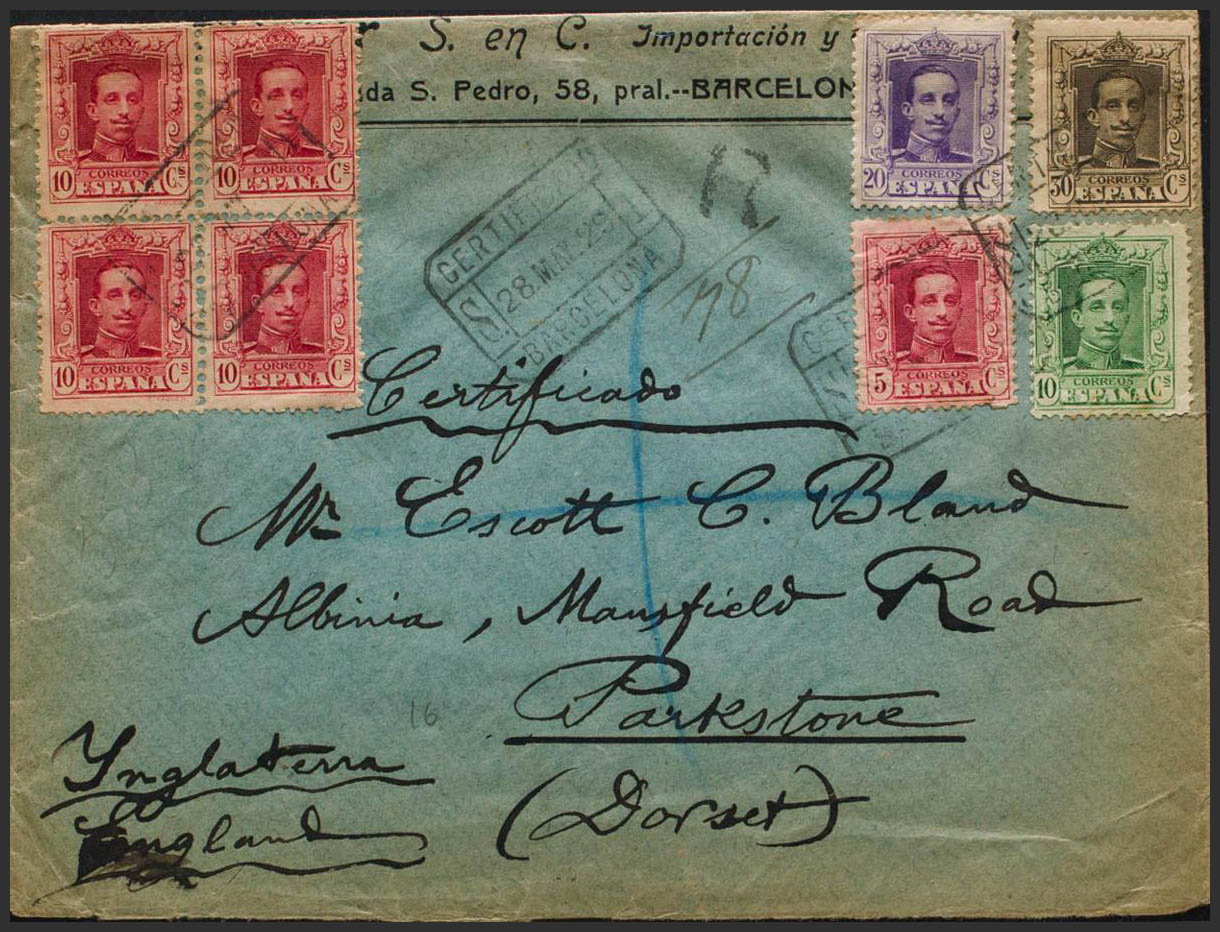 S. en C. Importación y
da S. Pedro, 58, pral.--BARCELON
10 CORREOS ESPAÑA Cs
10 CORREOS ESPAÑA Cs
20 CORREOS ESPAÑA Cs
30 CORREOS ESPAÑA Cs
10 CORREOS ESPAÑA Cs
10 CORREOS ESPAÑA Cs
5 CORREOS ESPAÑA Cs
10 CORREOS ESPAÑA Cs
R
CERTIFICADO
1
28.MAY.29
S
BARCELONA
178
Certificado
Mr Escott C. Bland
Albinia, Mansfield Road
Parkstone
16
(Dorset)
Ynglaterra
England